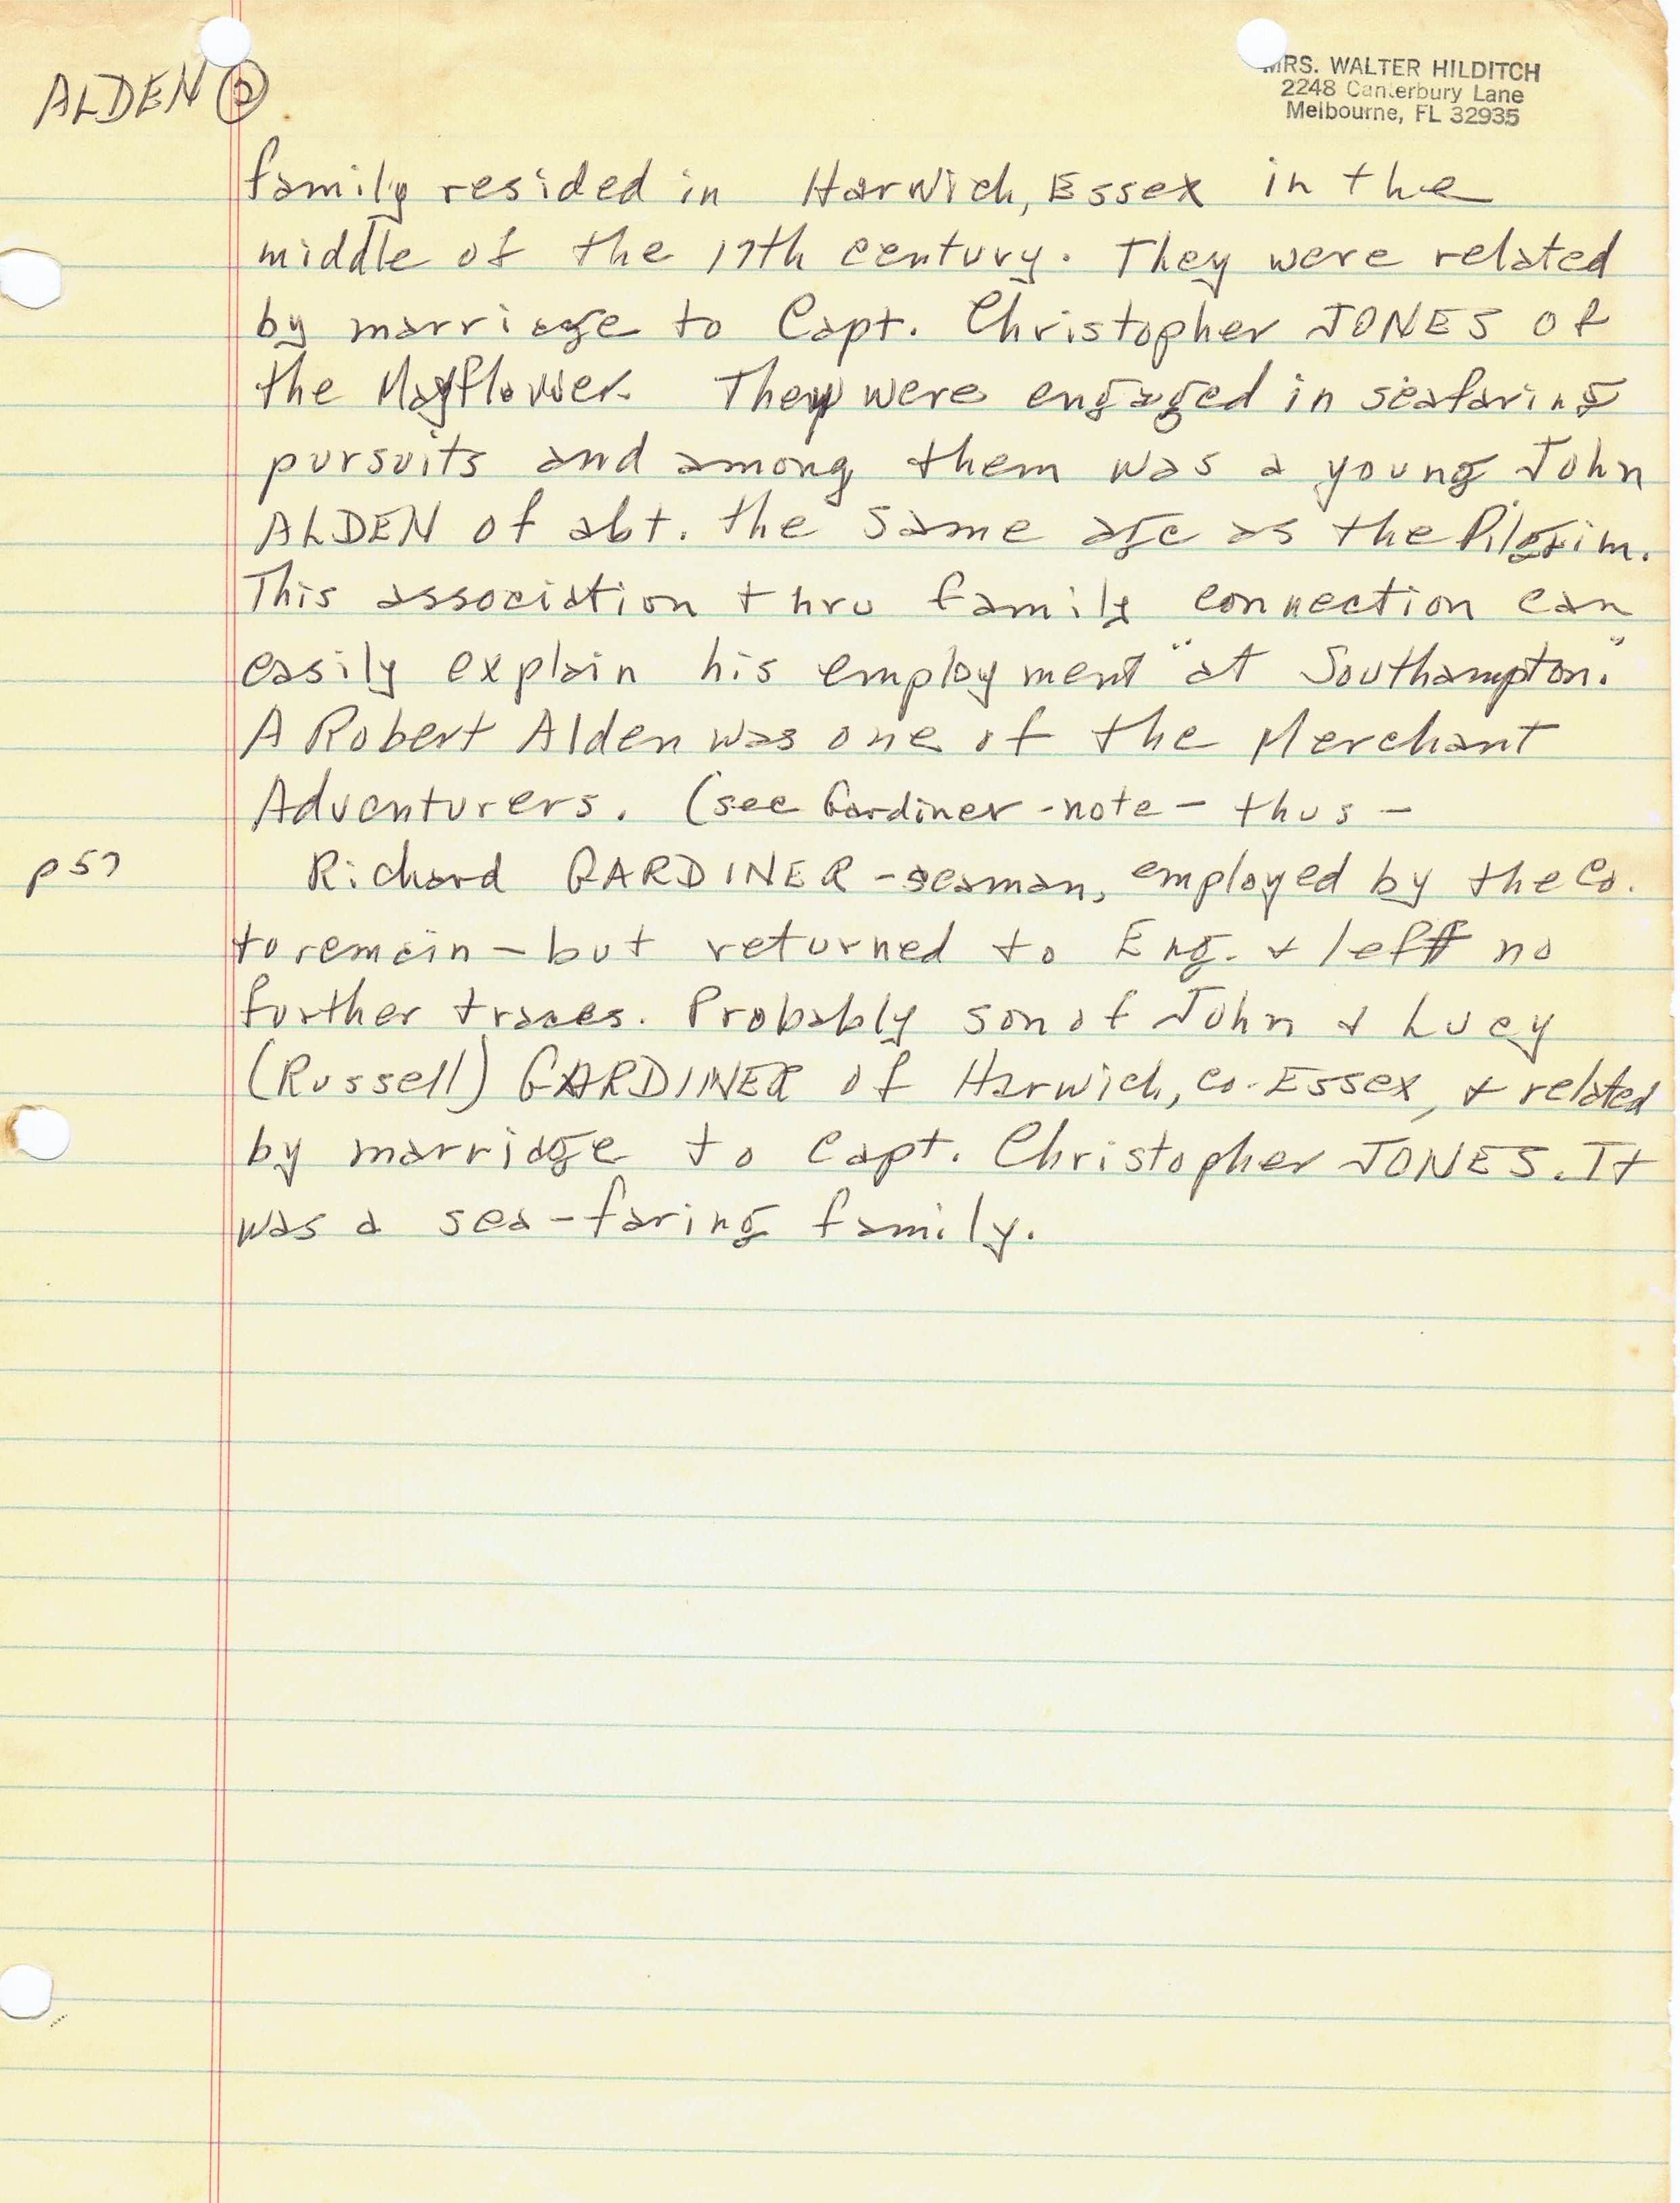 ALDEN ②
MRS. WALTER HILDITCH
2248 Canterbury Lane
Melbourne, FL 32935
family resided in Harwich, Essex in the
middle of the 17th century. They were related
by marriage to Capt. Christopher JONES of
the Mayflower. They were engaged in seafaring
pursuits and among them was a young John
ALDEN of abt. the same age as the Pilgrim.
This association thru family connection can
easily explain his employment "at Southampton."
A Robert Alden was one of the Merchant
Adventurers. (see Gardiner - note - thus -
p 57 Richard GARDINER - seaman, employed by the Co.
to remain - but returned to Eng. & left no
further traces. Probably son of John & Lucy
(Russell) GARDINER of Harwich, co. Essex, & related
by marriage to Capt. Christopher JONES. It
was a sea-faring family.